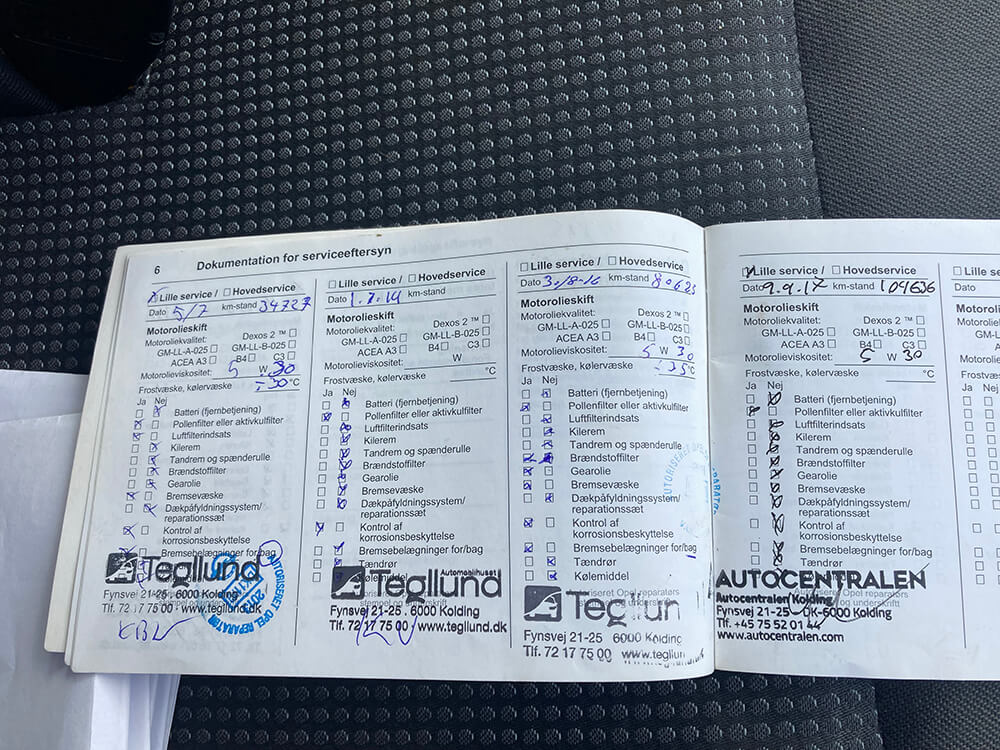 6 Dokumentation for serviceeftersyn
Lille service / Hovedservice
Dato 5/7 km-stand 34727
Motorolieskift
Motoroliekvalitet: Dexos 2 ™
GM-LL-A-025 GM-LL-B-025
ACEA A3 B4 C3
Motorolieviskositet: 5 W 30
Frostvæske, kølervæske -30 °C
Ja Nej
Batteri (fjernbetjening)
Pollenfilter eller aktivkulfilter
Luftfilterindsats
Kilerem
Tandrem og spænderulle
Brændstoffilter
Gearolie
Bremsevæske
Dækpåfyldningssystem/
reparationssæt
Kontrol af
korrosionsbeskyttelse
Bremsebelægninger for/bag
Tegllund
Fynsvej 21-25 . 6000 Kolding
Tlf. 72 17 75 00 · www.tegllund.dk
AUTORISERET OPEL REPARATØR
Lille service / Hovedservice
Dato km-stand
Motorolieskift
Motoroliekvalitet: Dexos 2 ™
GM-LL-A-025 GM-LL-B-025
ACEA A3 B4 C3
Motorolieviskositet: W
Frostvæske, kølervæske °C
Ja Nej
Batteri (fjernbetjening)
Pollenfilter eller aktivkulfilter
Luftfilterindsats
Kilerem
Tandrem og spænderulle
Brændstoffilter
Gearolie
Bremsevæske
Dækpåfyldningssystem/
reparationssæt
Kontrol af
korrosionsbeskyttelse
Bremsebelægninger for/bag
Tændrør
Kølemiddel
Automobilhuset
Tegllund
Fynsvej 21-25 . 6000 Kolding
Tlf. 72 17 75 00 · www.tegllund.dk
Lille service / Hovedservice
Dato km-stand 80623
Motorolieskift
Motoroliekvalitet: Dexos 2 ™
GM-LL-A-025 GM-LL-B-025
ACEA A3 B4 C3
Motorolieviskositet: 5 W 30
Frostvæske, kølervæske -35 °C
Ja Nej
Batteri (fjernbetjening)
Pollenfilter eller aktivkulfilter
Luftfilterindsats
Kilerem
Tandrem og spænderulle
Brændstoffilter
Gearolie
Bremsevæske
Dækpåfyldningssystem/
reparationssæt
Kontrol af
korrosionsbeskyttelse
Bremsebelægninger for/bag
Tændrør
Kølemiddel
Fynsvej 21-25 6000 Kolding
Tlf. 72 17 75 00
Lille service / Hovedservice
Dato 9.9.17 km-stand 104636
Motorolieskift
Motoroliekvalitet: Dexos 2 ™
GM-LL-A-025 GM-LL-B-025
ACEA A3 B4 C3
Motorolieviskositet: 5 W 30
Frostvæske, kølervæske °C
Ja Nej
Batteri (fjernbetjening)
Pollenfilter eller aktivkulfilter
Luftfilterindsats
Kilerem
Tandrem og spænderulle
Brændstoffilter
Gearolie
Bremsevæske
Dækpåfyldningssystem/
reparationssæt
Kontrol af
korrosionsbeskyttelse
Bremsebelægninger for/bag
Tændrør
Kølemiddel
AUTOCENTRALEN
Autocentralen Kolding
Fynsvej 21-25 DK-6000 Kolding
Tlf. +45 75 52 01 44
www.autocentralen.com
Dato